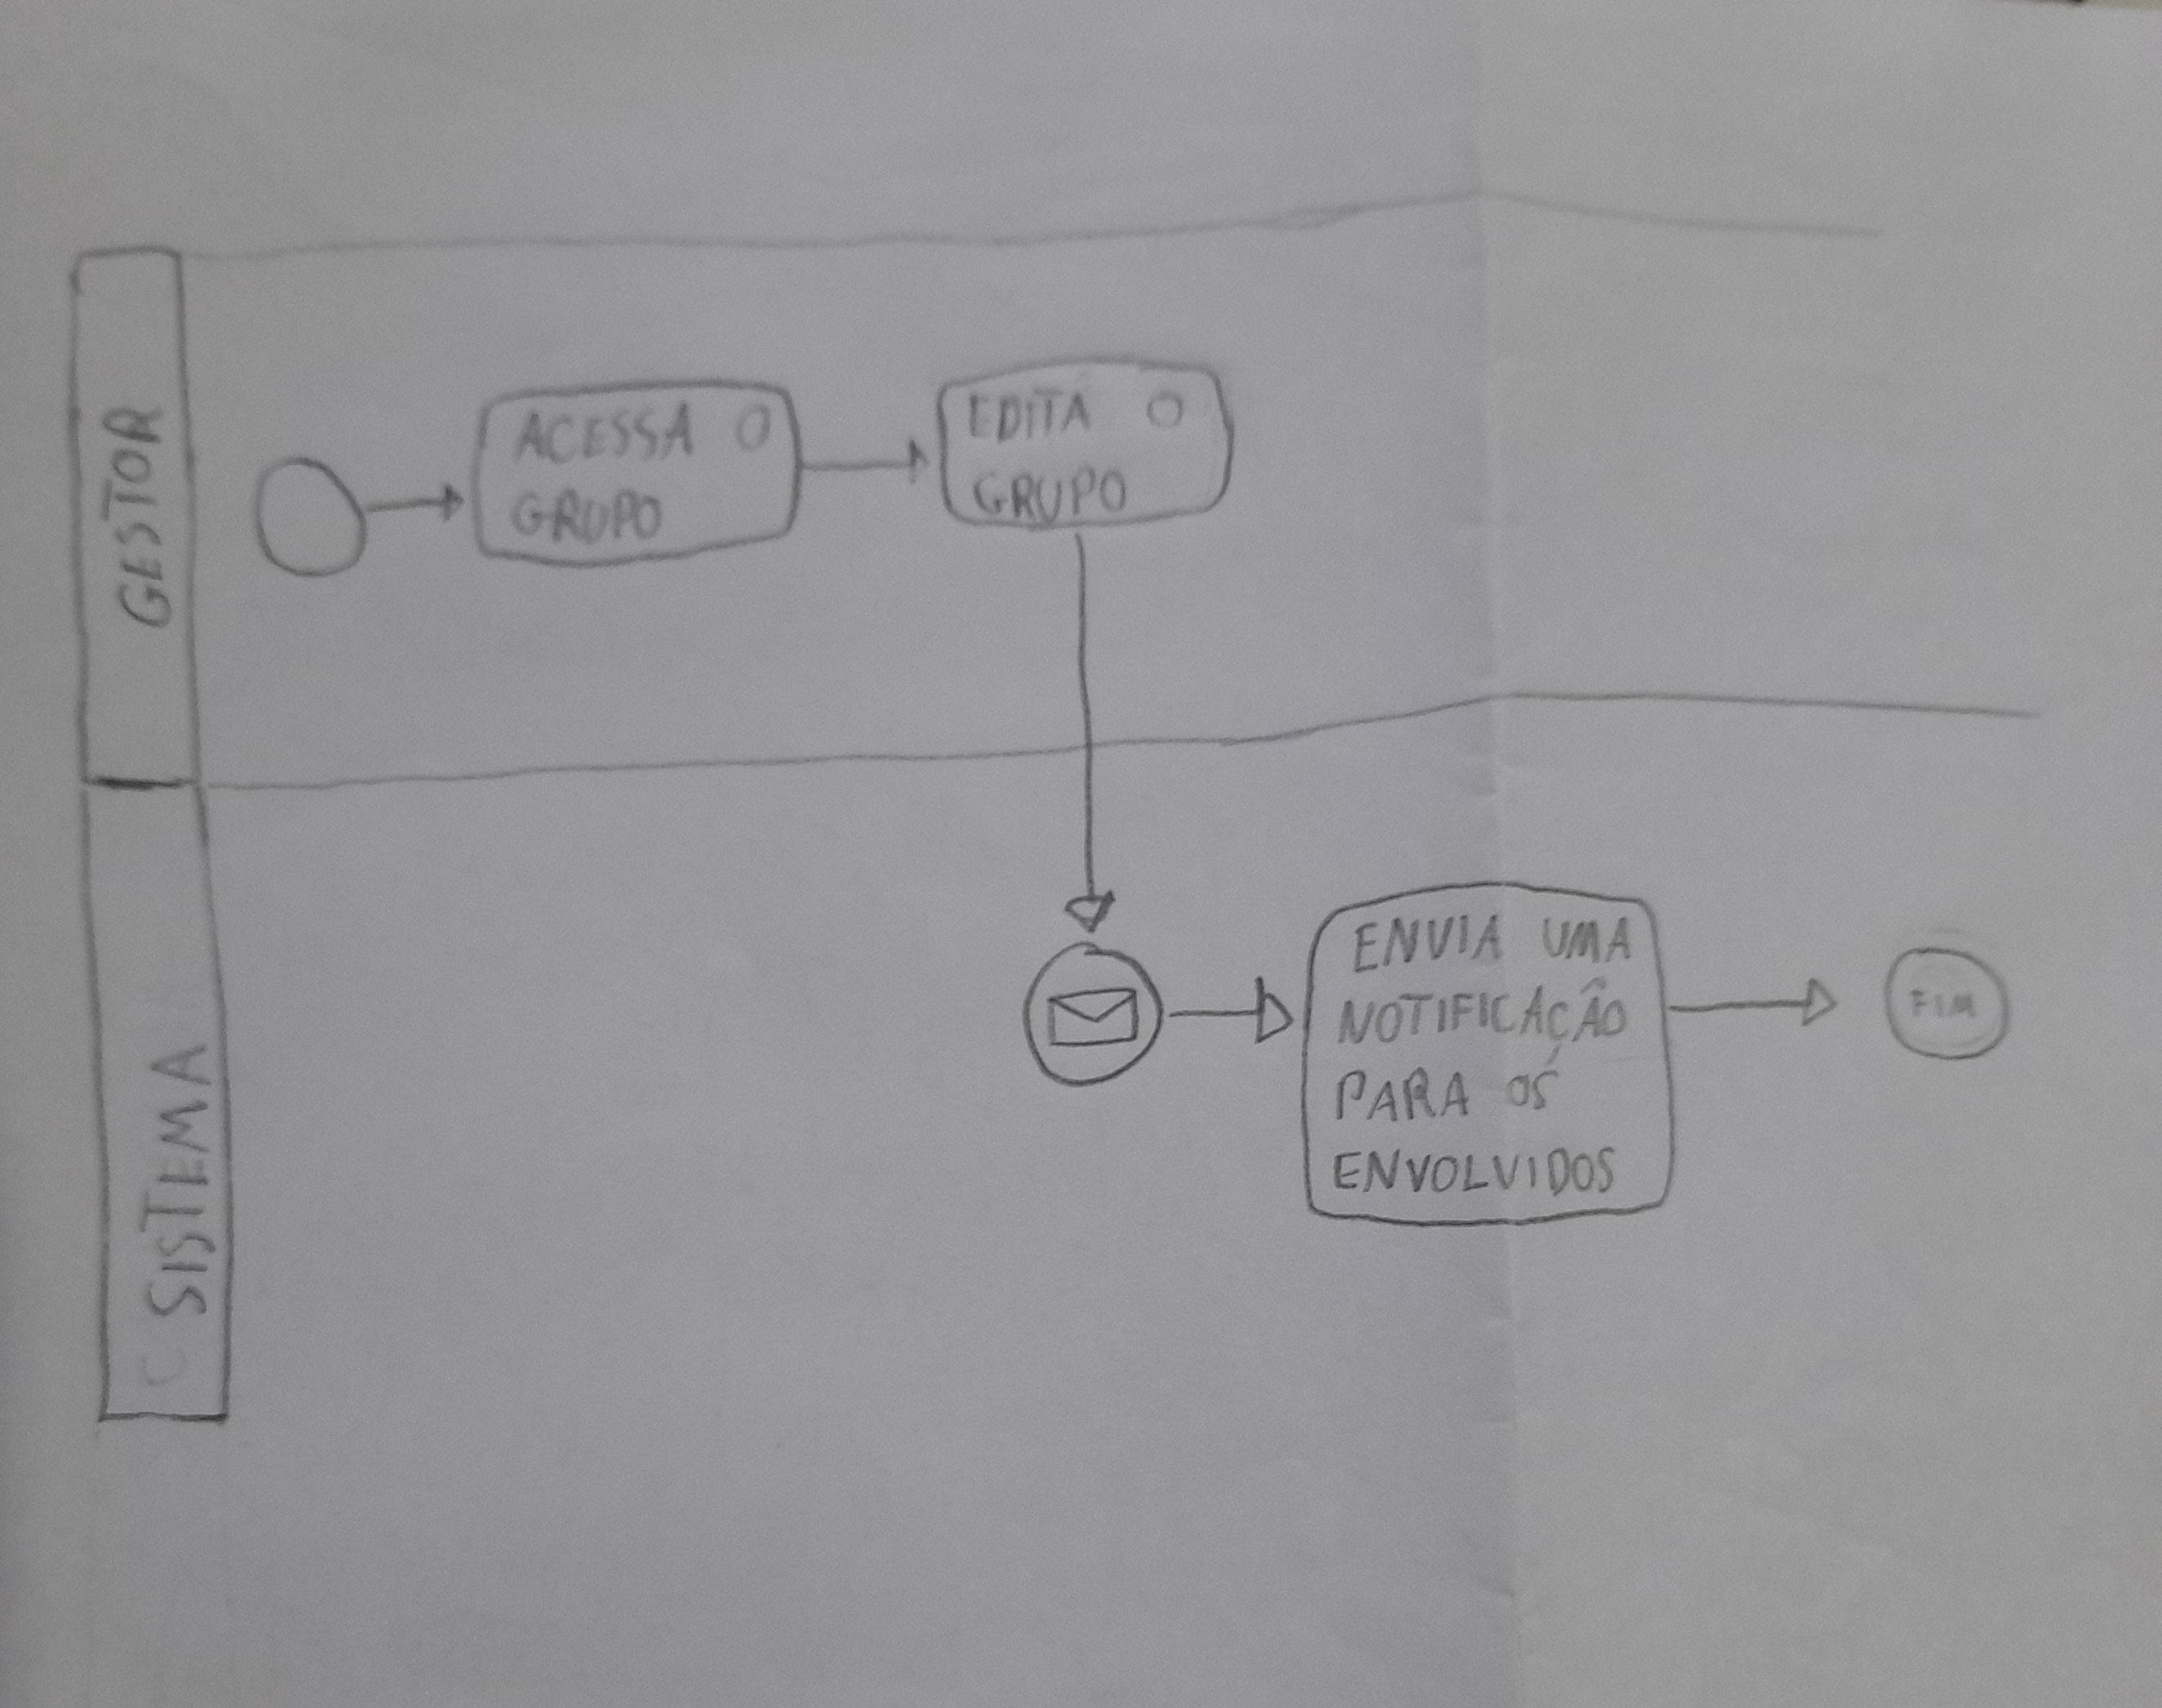 GESTOR
ACESSA O
GRUPO
EDITA O
GRUPO
SISTEMA
ENVIA UMA
NOTIFICAÇÃO
PARA OS
ENVOLVIDOS
FIM